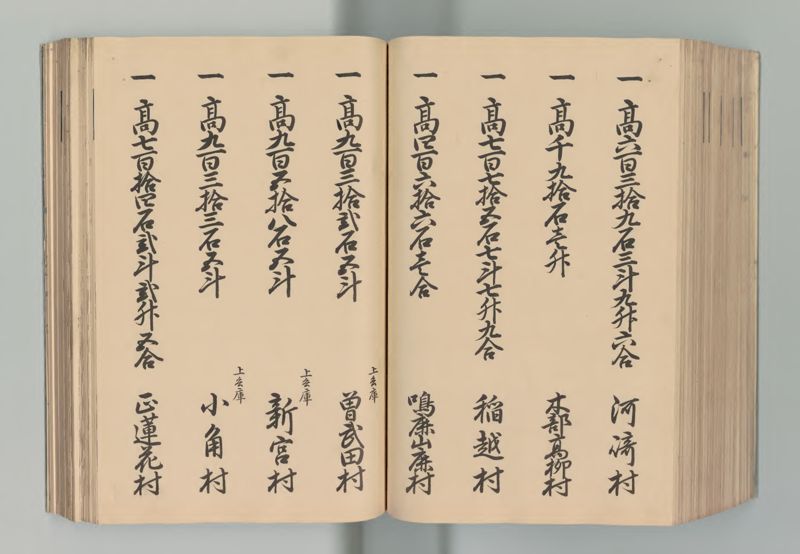 一 高六百三拾九石三斗九升六合 河﨑村
一 高千九拾石壱升 木部高柳村
一 高七百七拾五石七斗七升九合 稲越村
一 高四百六拾六石壱合 鳴鹿山鹿村
一 高九百三拾弐石五斗 上兵庫 曽武田村
一 高九百五拾八石五斗 上兵庫 新宮村
一 高九百三拾三石五斗 上兵庫 小角村
一 高七百拾四石弐斗弐升五合 正蓮花村